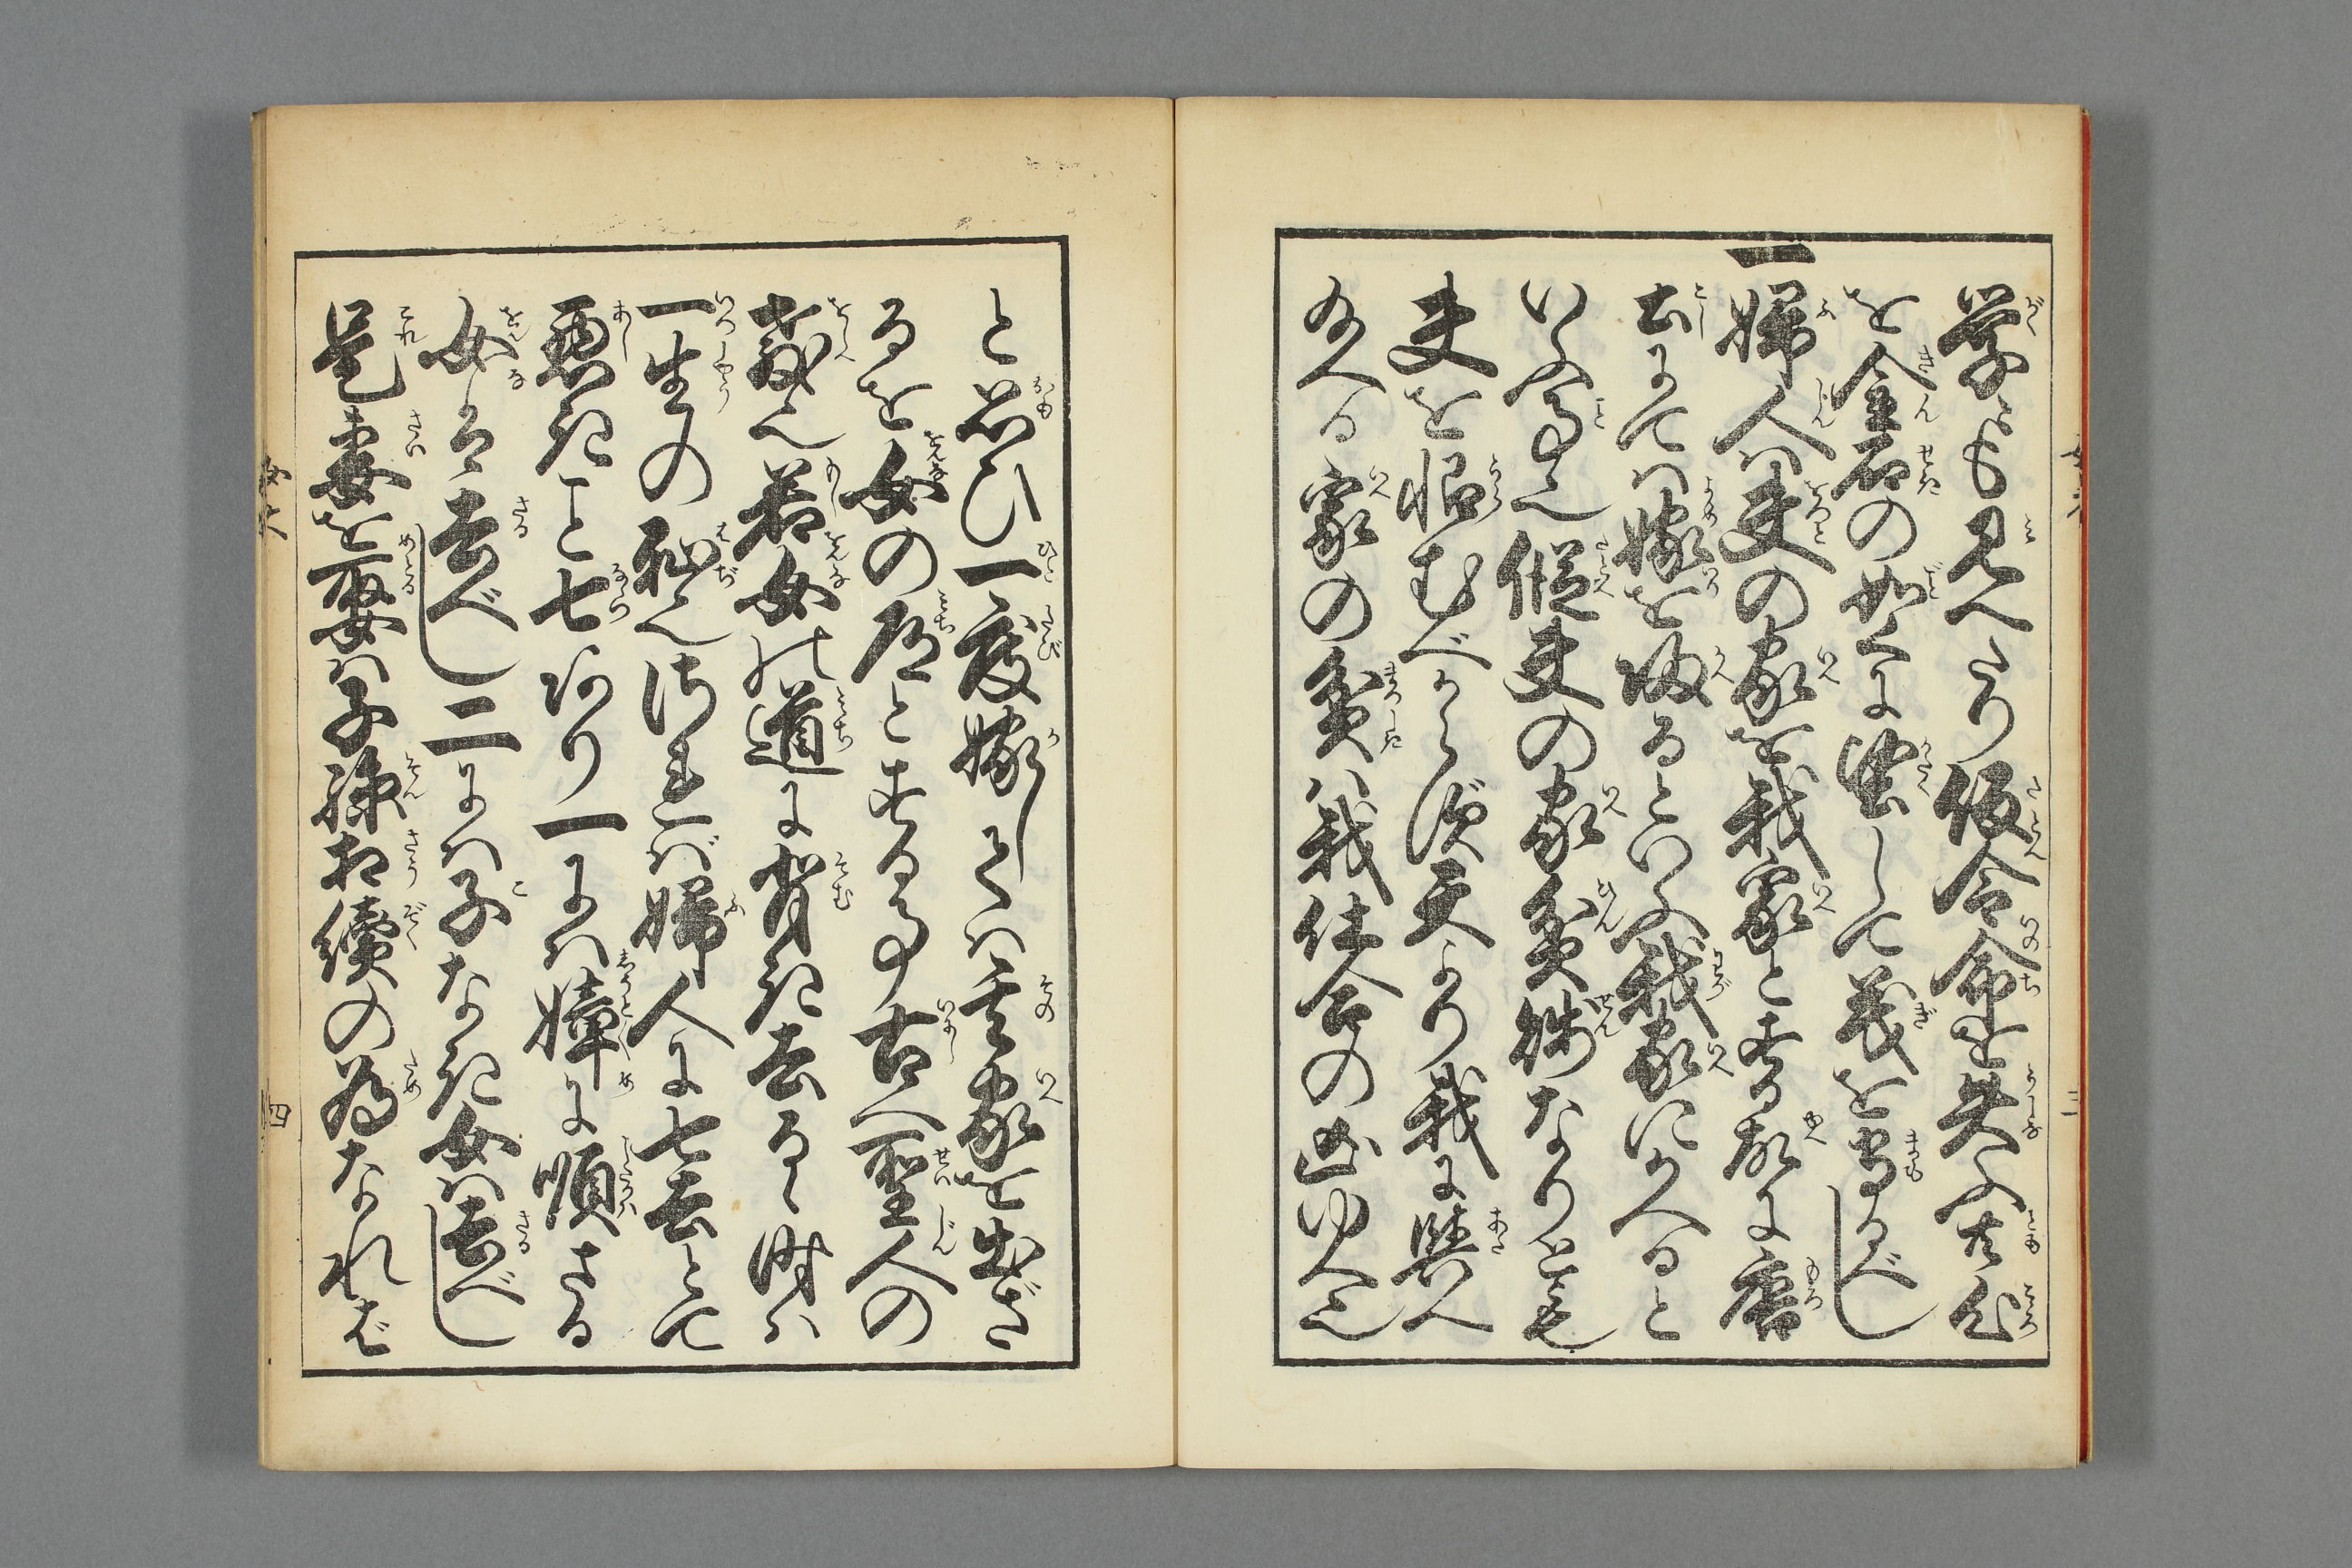 学にも見へたり仮令命を失ふ共心
を金石の如くに堅して義を守るべし
一
婦人は夫の家を我家とする故に唐
土にては嫁を帰るといふ我家にかへると
いふ事也縦夫の家貧賤なりとも
夫を怨むべからず天より我に与へ
給へる家の貧は我仕合の凶ゆへ也
と思ひ一度嫁しては其家を出ざ
るを女の道とする事古へ聖人の
教也若女の道に背き去るゝ時は
一生の恥也されば婦人に七去とて
悪きこと七ツあり一には嫜に順ざる
女は去べし二には子なき女は去べし
是妻を娶は子孫相続の為なれば
四